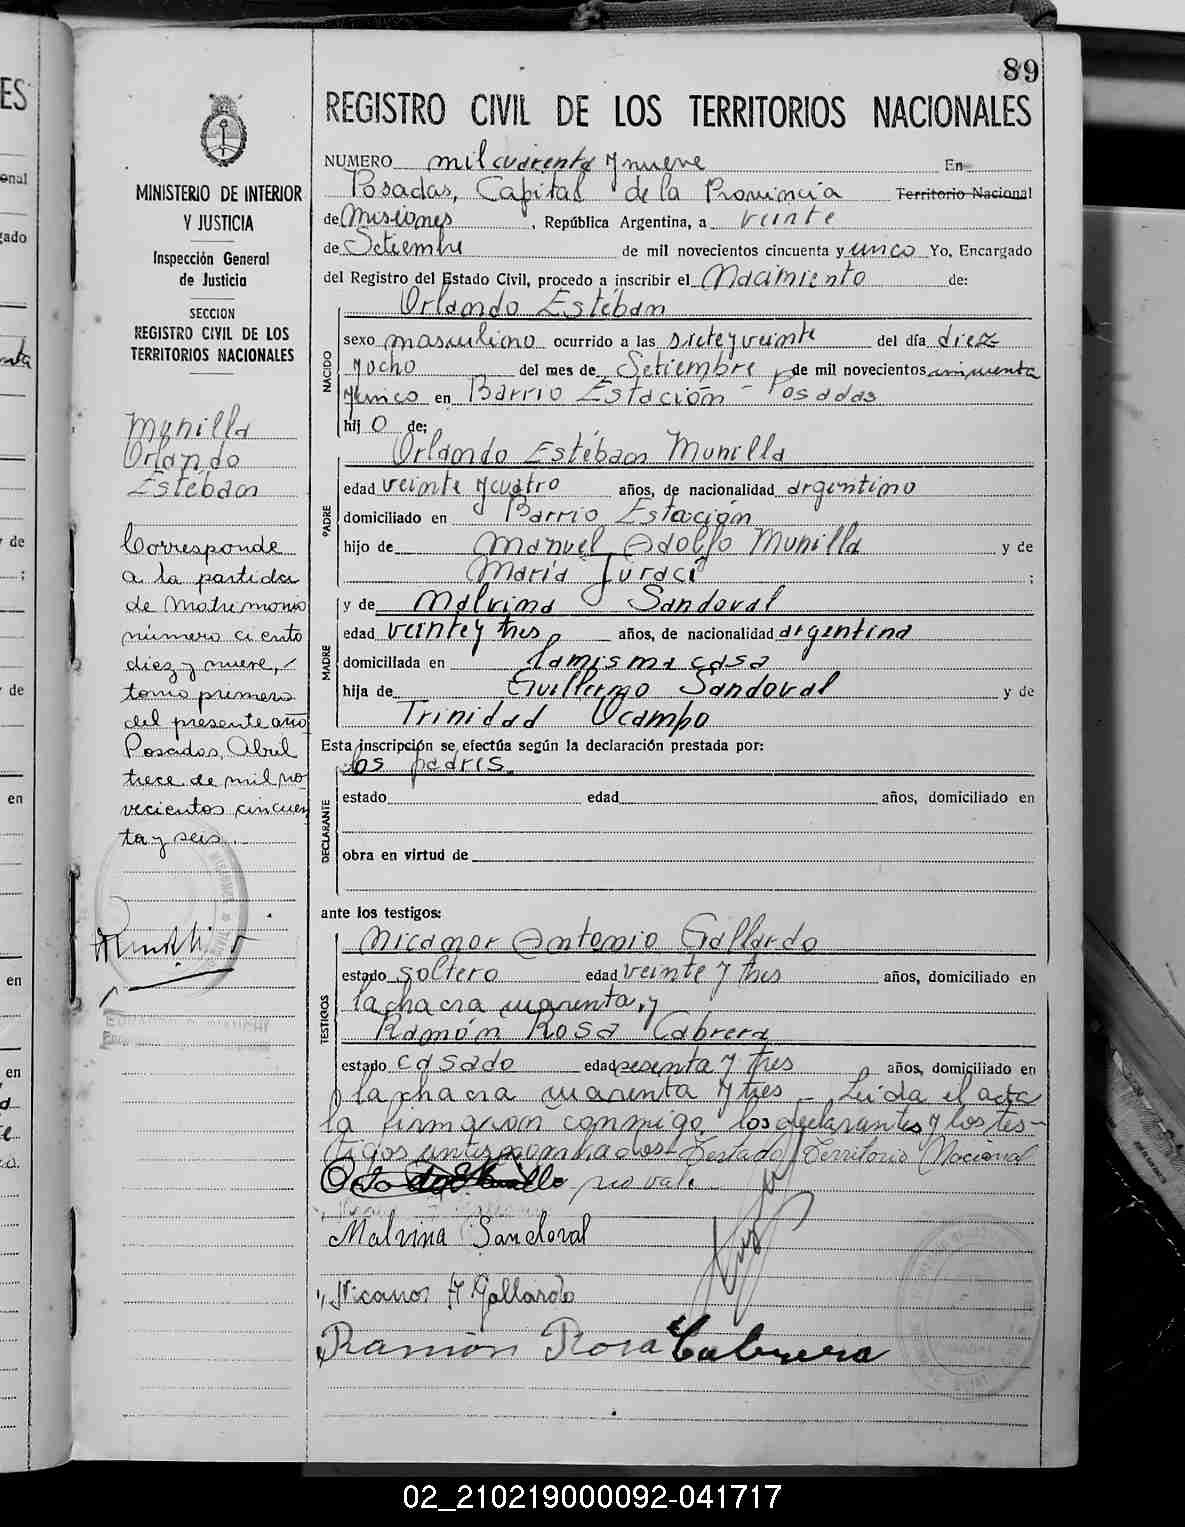 89
REGISTRO CIVIL DE LOS TERRITORIOS NACIONALES
MINISTERIO DE INTERIOR
Y JUSTICIA
Inspección General
de Justicia
SECCION
REGISTRO CIVIL DE LOS
TERRITORIOS NACIONALES
Munilla
Orlando
Estéban
Corresponde
a la partida
de Matrimonio
número ciento
diez y nueve,
tomo primero
del presente año
Posadas, Abril
trece de mil no
vecientos cincuen
ta y seis.
NUMERO mil cuarenta y nueve En
Posadas, Capital de la Provincia Territorio Nacional
de Misiones, República Argentina, a veinte
de Setiembre de mil novecientos cincuenta y unico Yo, Encargado
del Registro del Estado Civil, procedo a inscribir el Nacimiento de:
Orlando Estéban
NACIDO
sexo masculino ocurrido a las siete y veinte del día diez
y ocho del mes de Setiembre de mil novecientos cincuenta
y unico en Barrio Estación - Posadas
hijo de:
Orlando Estéban Munilla
PADRE
edad veinte y cuatro años, de nacionalidad argentino
domiciliado en Barrio Estación
hijo de Manuel Adolfo Munilla y de
María Juraci ;
MADRE
y de Malvina Sandoval
edad veinte y tres años, de nacionalidad argentina
domiciliada en la misma casa
hija de Guillermo Sandoval y de
Trinidad Ocampo
Esta inscripción se efectúa según la declaración prestada por:
los padres.
DECLARANTE
estado edad años, domiciliado en
obra en virtud de
ante los testigos:
TESTIGOS
Nicanor Antonio Gallardo
estado soltero edad veinte y tres años, domiciliado en
la chacra cuarenta, y
Ramón Rosa Cabrera
estado casado edad sesenta y tres años, domiciliado en
la chacra cuarenta y tres - Leída el acta
la firmaron conmigo los declarantes y los tes-
tigos antes nombrados - Testado Territorio Nacional
no vale.
Malvina Sandoval
Nicanor A Gallardo
Ramón Rosa Cabrera
ES
onal
gado
de
de
en
en
en
02_210219000092-041717